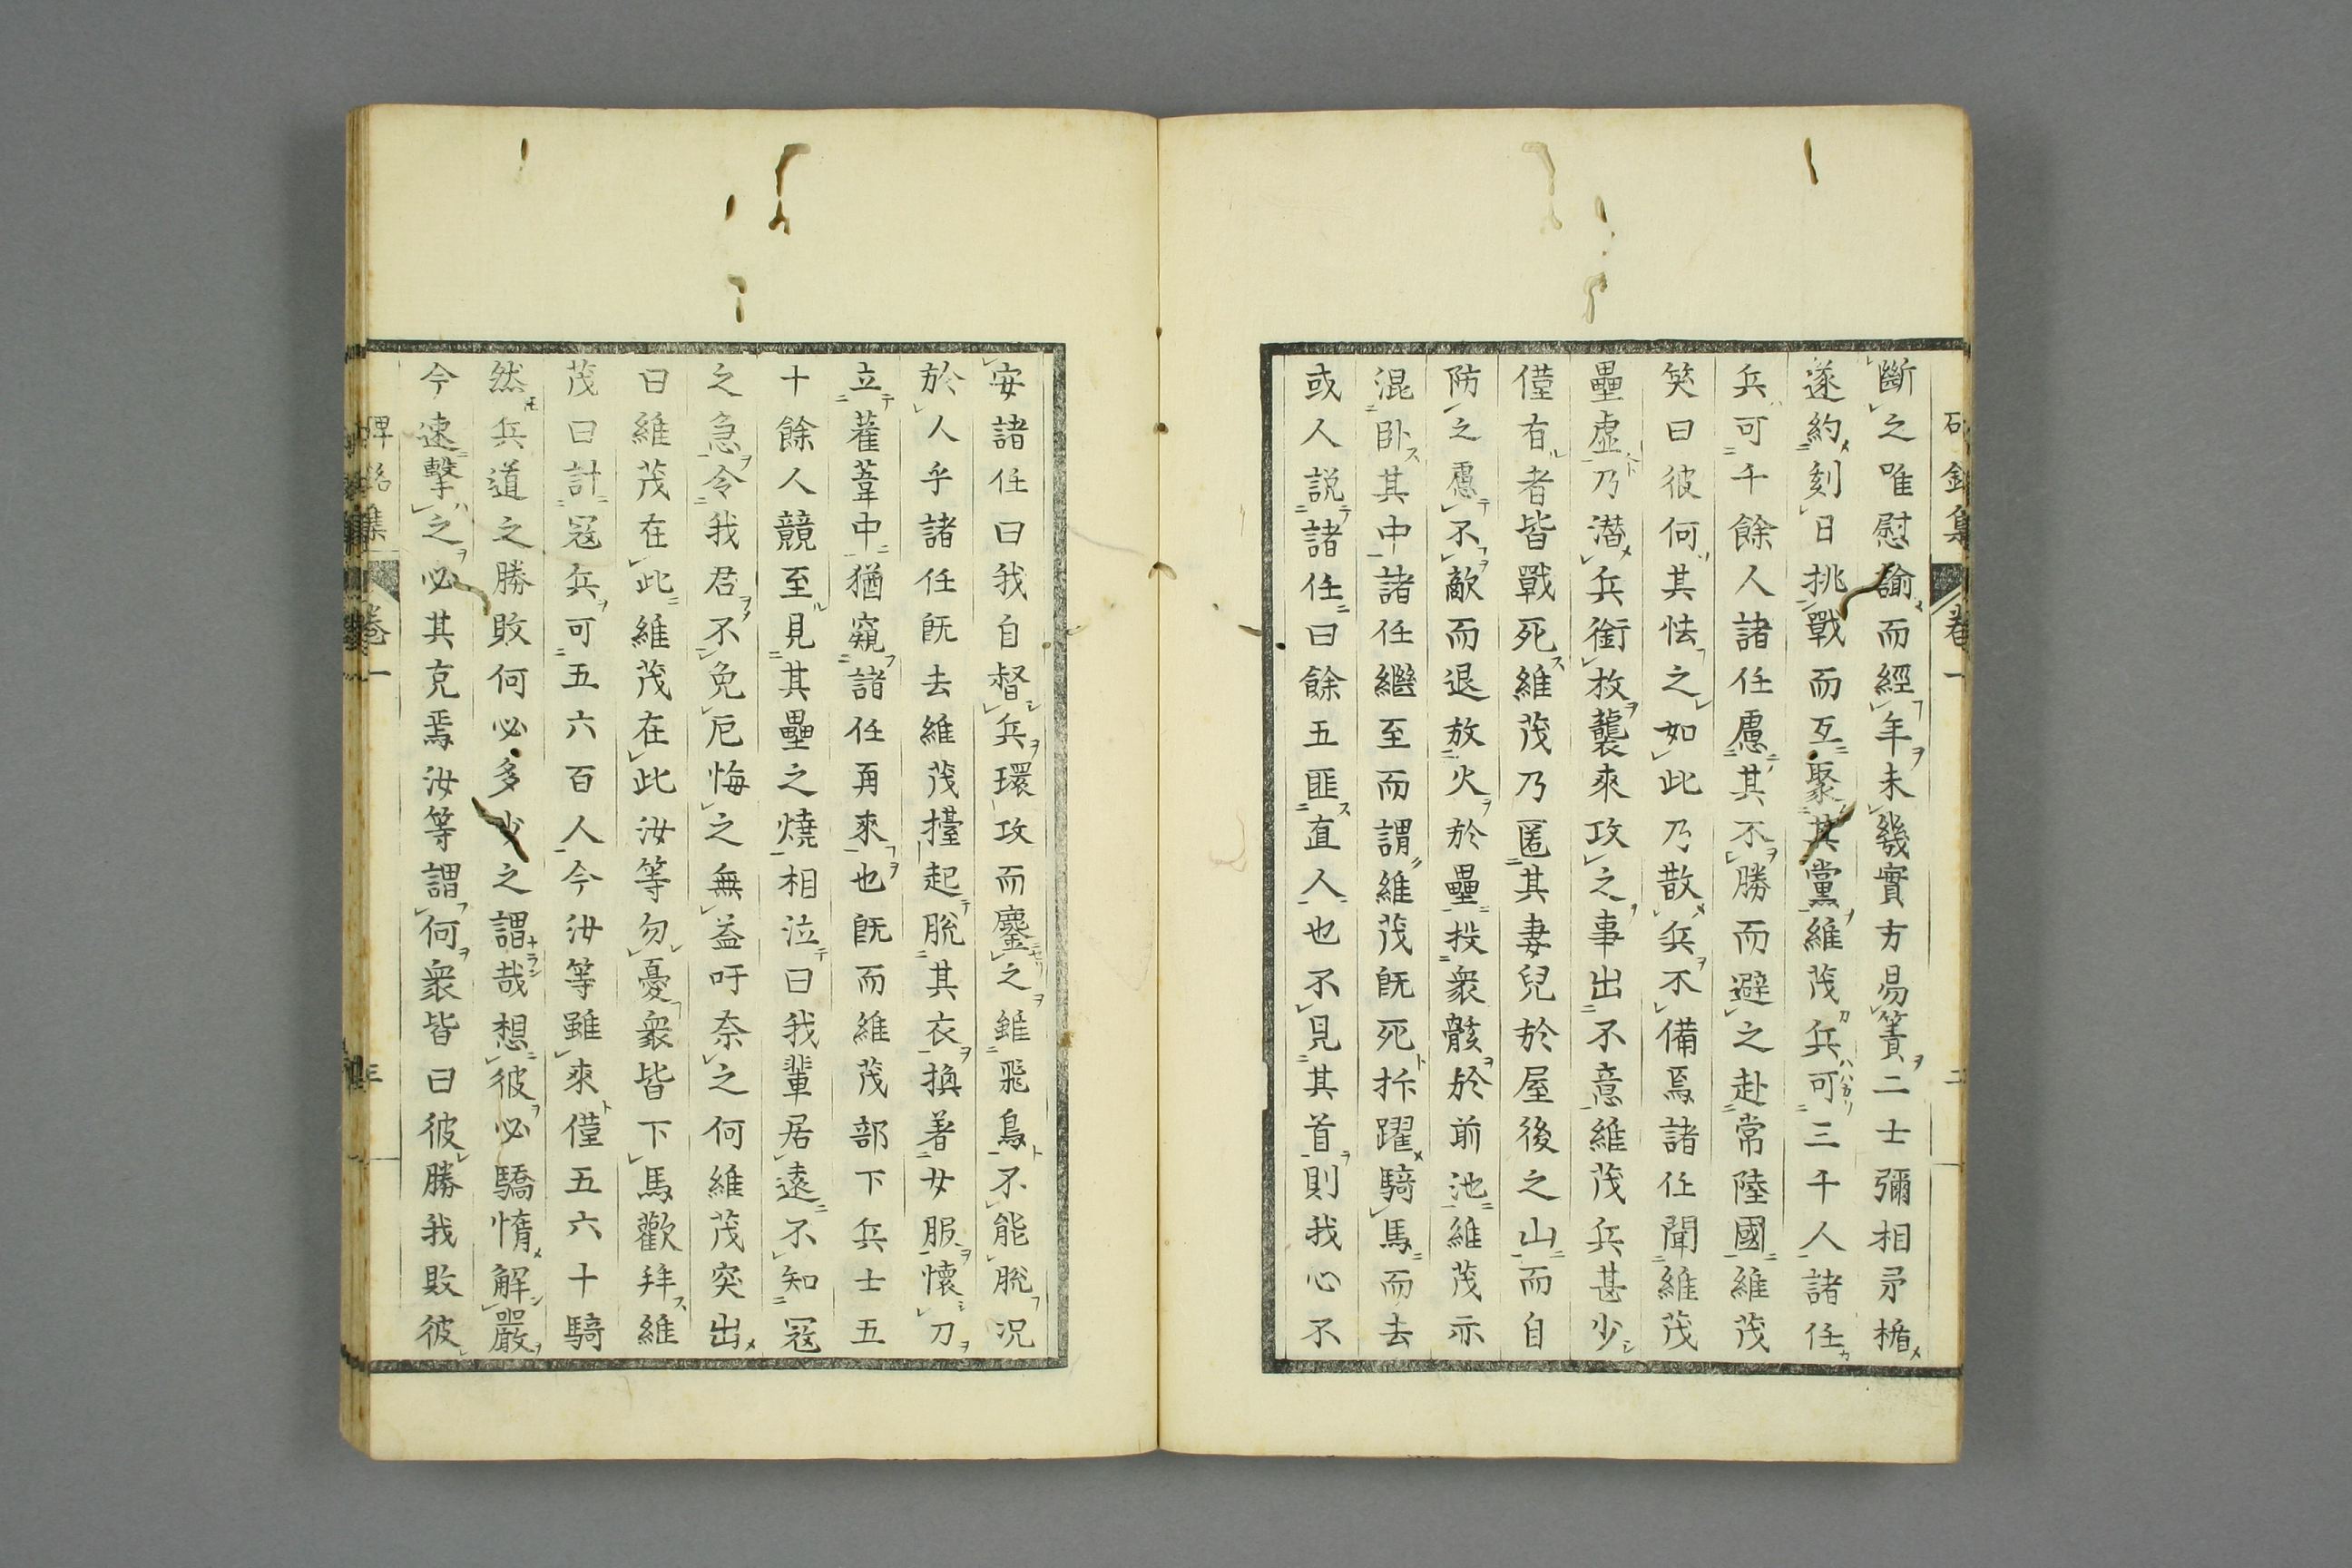 斷之唯慰諭而經年未幾實方易簀二士彌相矛楯
遂約刻日挑戰而互聚其黨維茂兵可三千人諸任
兵可千餘人諸任慮其不勝而避之赴常陸國維茂
笑曰彼何其怯之如此乃散兵不備焉諸任聞維茂
壘虛乃潛兵銜枚襲來攻之事出不意維茂兵甚少
僅有者皆戰死維茂乃匿其妻兒於屋後之山而自
防之慮不敵而退放火於壘投衆骸於前池維茂亦
混卧其中諸任繼至而謂維茂既死抃躍騎馬而去
或人説諸任曰餘五匪直人也不見其首則我心不
安諸任曰我自督兵環攻而鏖之雖飛鳥不能脱况
於人乎諸任既去維茂擡起脱其衣換着女服懷刀
立雚葦中猶窺諸任再來也既而維茂部下兵士五
十餘人競至見其壘之燒相泣曰我輩居遠不知寇
之急令我君不免厄悔之無益吁奈之何維茂突出
曰維茂在此維茂在此汝等勿憂衆皆下馬歡拜維
茂曰計寇兵可五六百人今汝等雖來僅五六十騎
然兵道之勝敗何必多少之謂哉想彼必驕惰解嚴
今速擊之必其克焉汝等謂何衆皆曰彼勝我敗彼
卷一